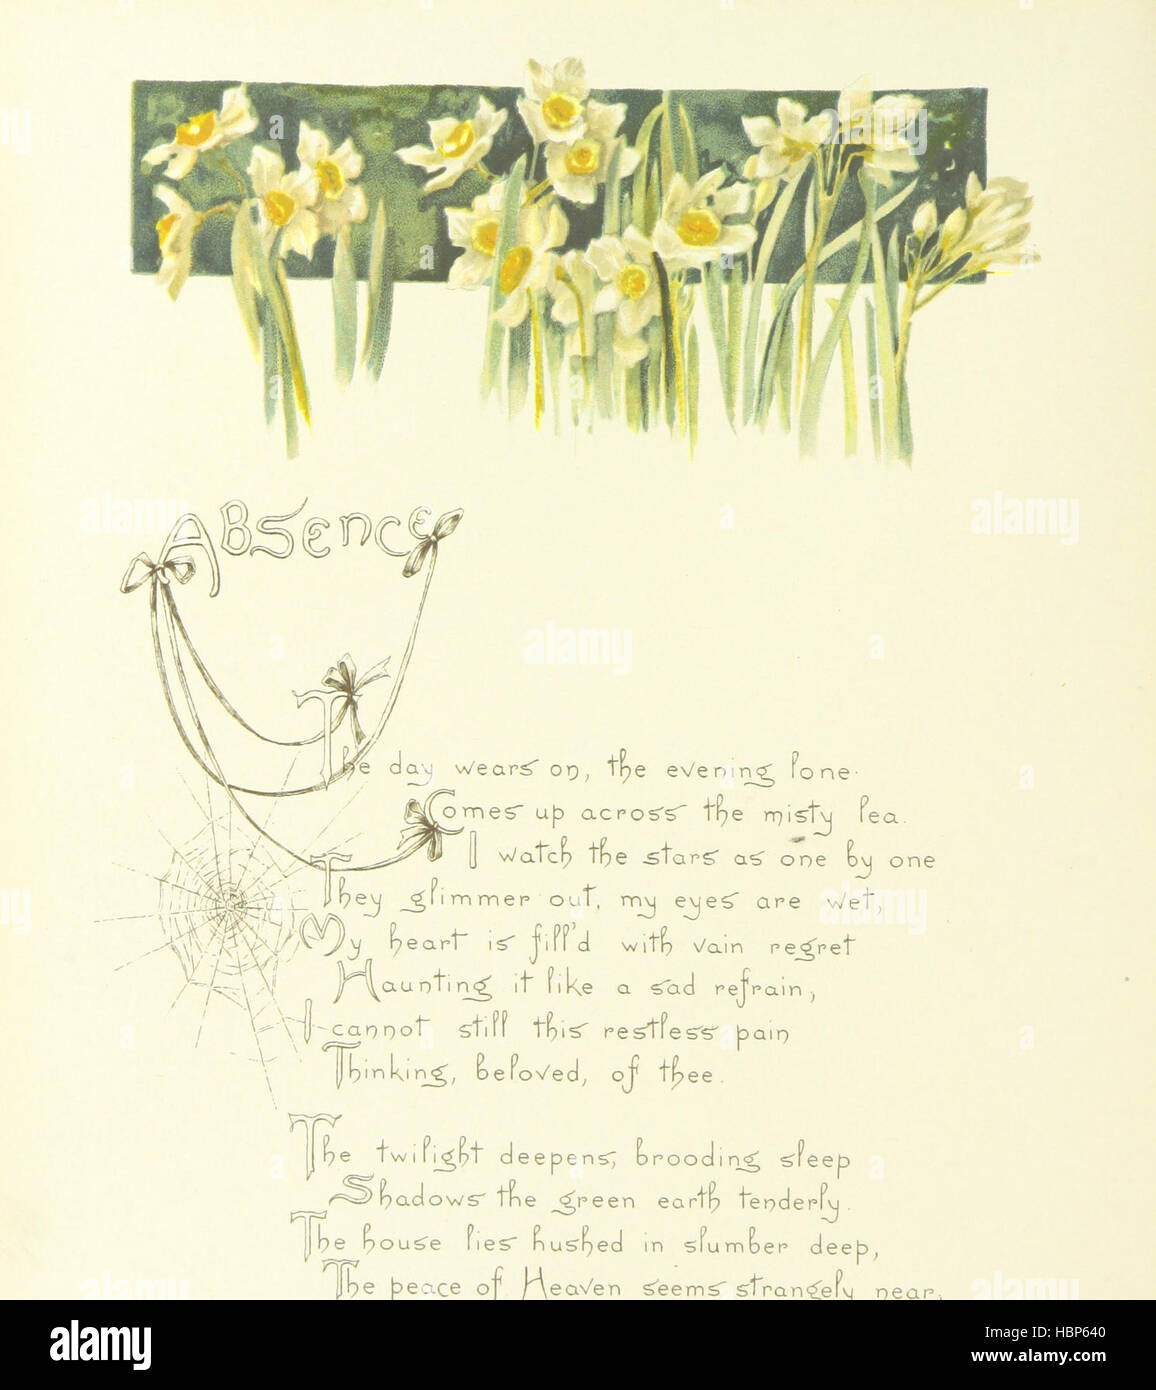 Absence
The day wears on, the evening lone
Comes up across the misty lea.
I watch the stars as one by one
They glimmer out, my eyes are wet,
My heart is fill'd with vain regret
Haunting it like a sad refrain,
I cannot still this restless pain
Thinking, beloved, of thee.
The twilight deepens, brooding sleep
Shadows the green earth tenderly.
The house lies hushed in slumber deep,
The peace of Heaven seems strangely near,
alamy
Image ID: HBP640
www.alamy.com